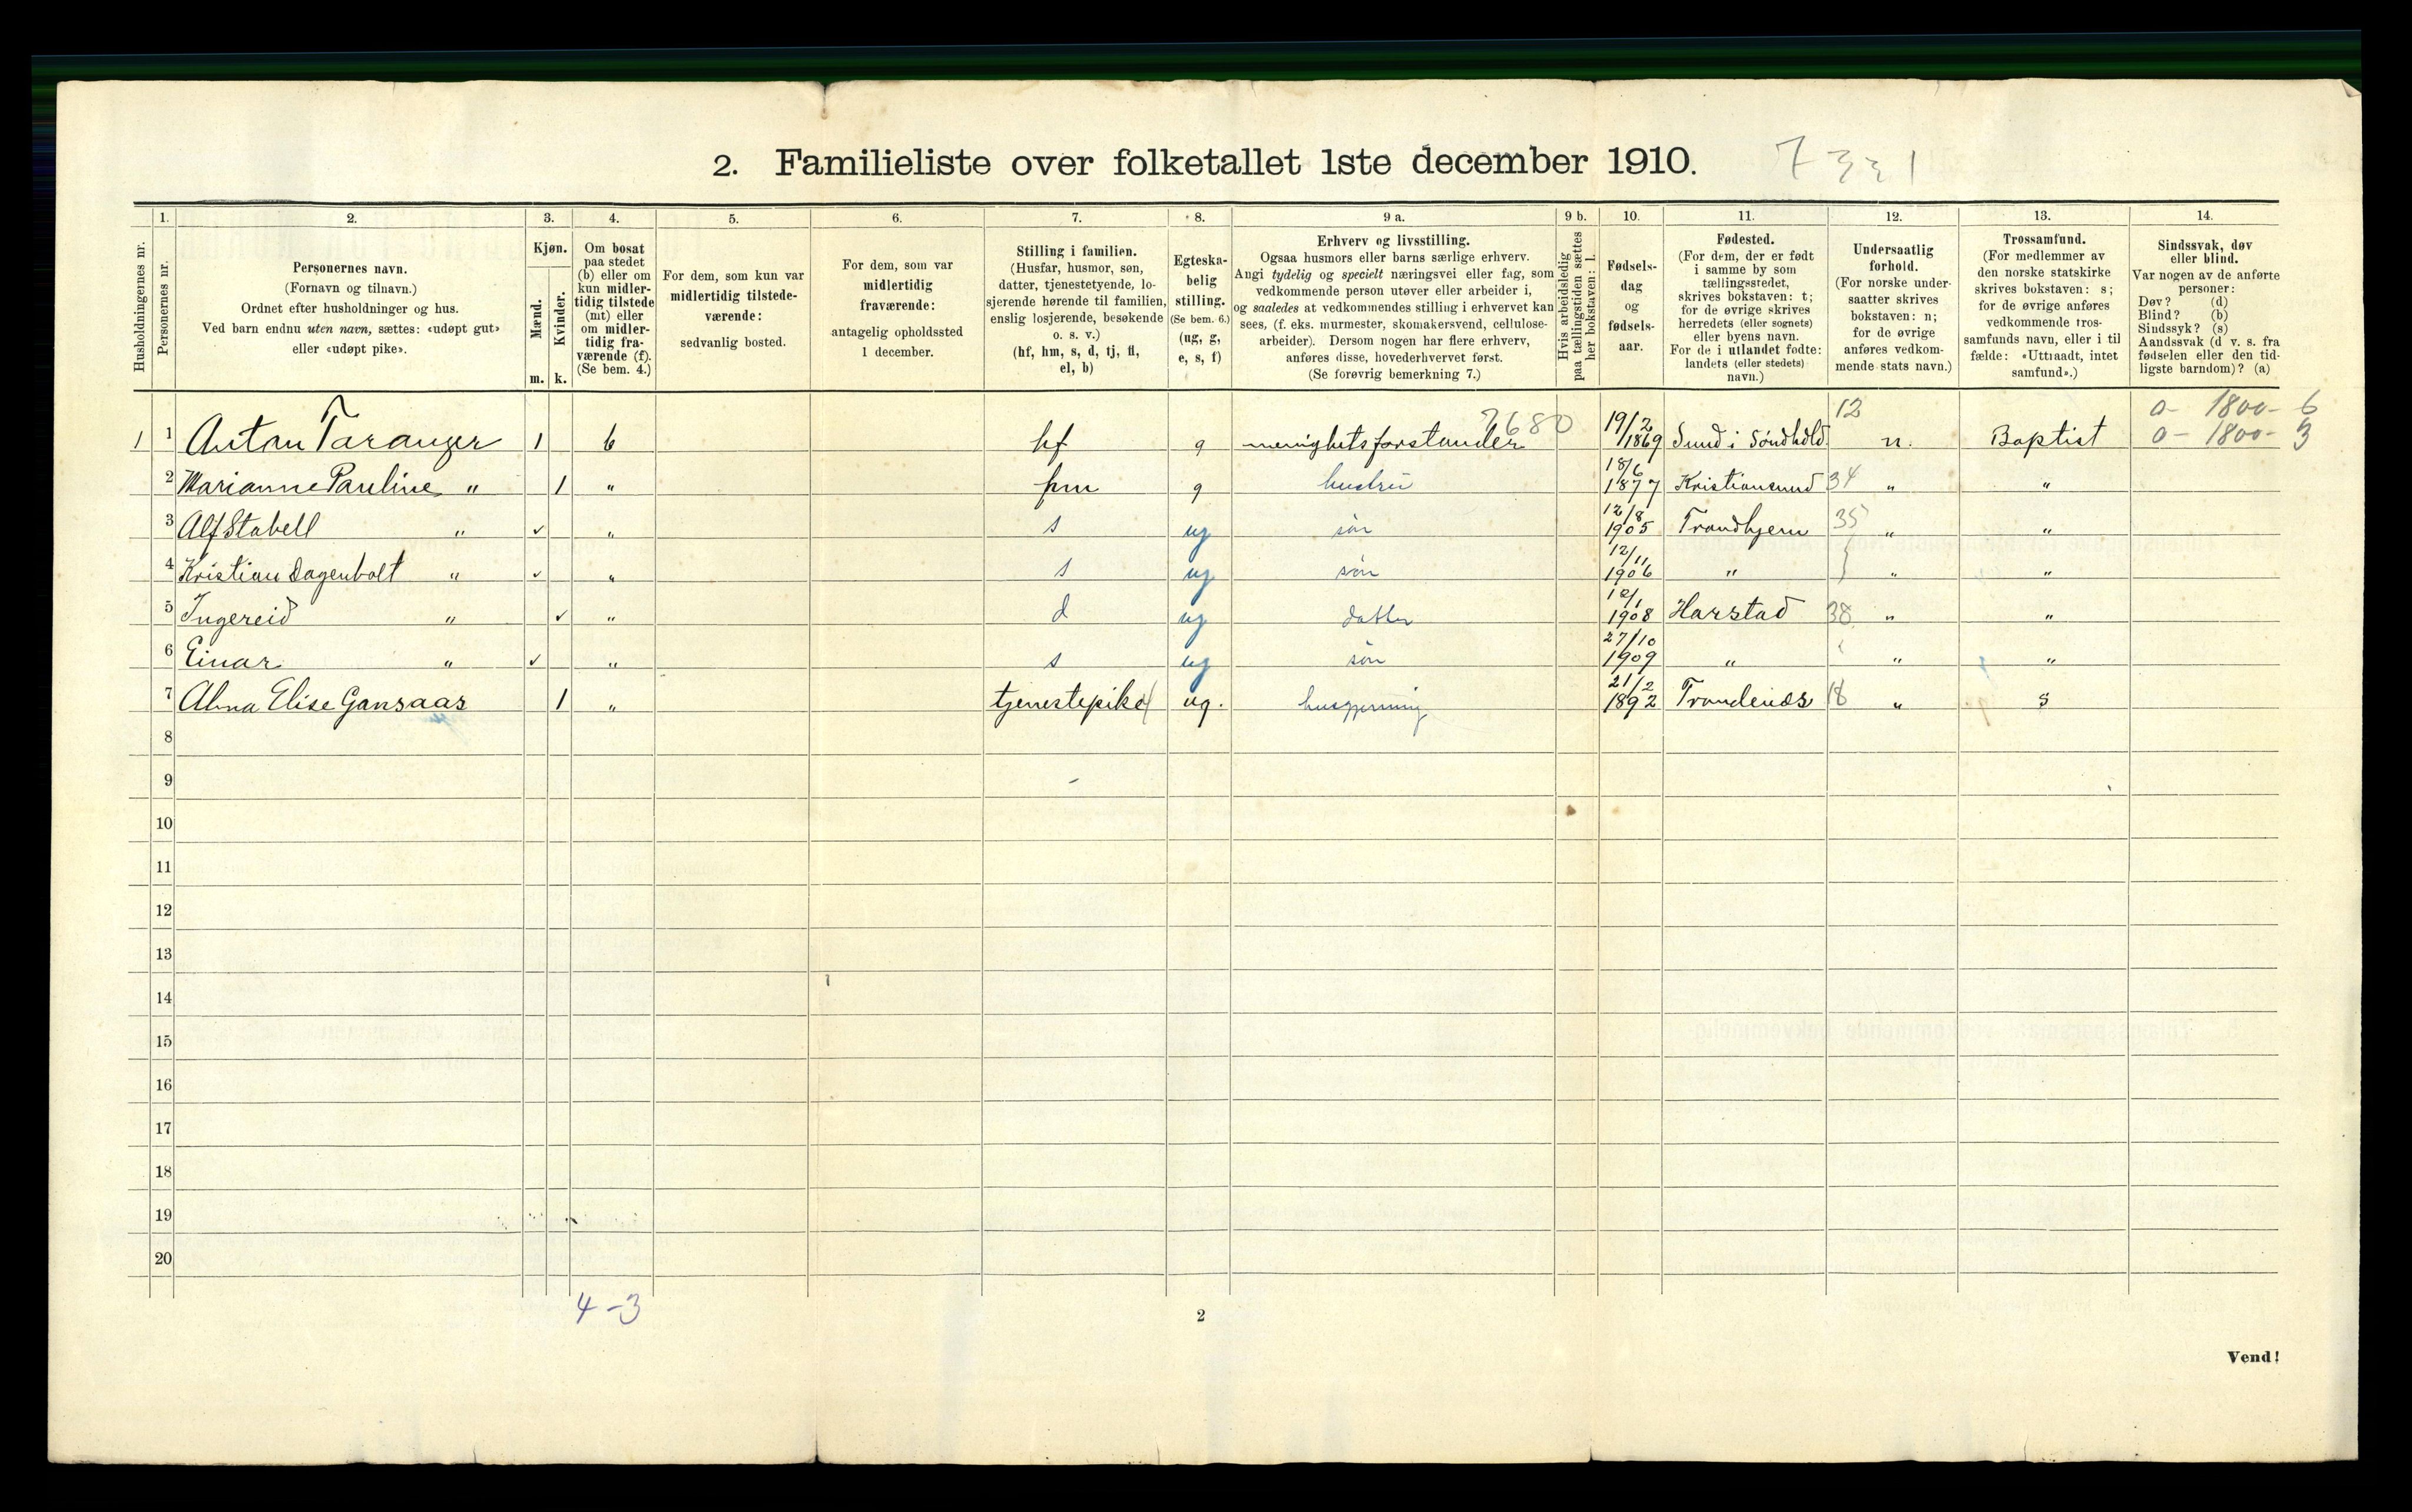 2. Familieliste over folketallet 1ste december 1910.
Husholdningernes nr.
1.
Personernes nr.
2.
Personernes navn.
(Fornavn og tilnavn.)
Ordnet efter husholdninger og hus.
Ved barn endnu uten navn, sættes: «udøpt gut»
eller «udøpt pike».
3.
Kjøn.
Mænd.
Kvinder.
m. k.
4.
Om bosat
paa stedet
(b) eller om
kun midler-
tidig tilstede
(mt) eller
om midler-
tidig fra-
værende (f).
(Se bem. 4.)
5.
For dem, som kun var
midlertidig tilstede-
værende:
sedvanlig bosted.
6.
For dem, som var
midlertidig
fraværende:
antagelig opholdssted
1 december.
7.
Stilling i familien.
(Husfar, husmor, søn,
datter, tjenestetyende, lo-
sjerende hørende til familien,
enslig losjerende, besøkende
o. s. v.)
(hf, hm, s, d, tj, fl,
el, b)
8.
Egteska-
belig
stilling.
(Se bem. 6.)
(ug, g,
e, s, f)
9 a.
Erhverv og livsstilling.
Ogsaa husmors eller barns særlige erhverv.
Angi tydelig og specielt næringsvei eller fag, som
vedkommende person utøver eller arbeider i,
og saaledes at vedkommendes stilling i erhvervet kan
sees, (f. eks. murmester, skomakersvend, cellulose-
arbeider). Dersom nogen har flere erhverv,
anføres disse, hovederhvervet først.
(Se forøvrig bemerkning 7.)
9 b.
Hvis arbeidsledig
paa tællingstiden sættes
her bokstaven: l.
10.
Fødsels-
dag
og
fødsels-
aar.
11.
Fødested.
(For dem, der er født
i samme by som
tællingsstedet,
skrives bokstaven: t;
for de øvrige skrives
herredets (eller sognets)
eller byens navn.
For de i utlandet fødte:
landets (eller stedets)
navn.)
12.
Undersaatlig
forhold.
(For norske under-
saatter skrives
bokstaven: n;
for de øvrige
anføres vedkom-
mende stats navn.)
13.
Trossamfund.
(For medlemmer av
den norske statskirke
skrives bokstaven: s;
for de øvrige anføres
vedkommende tros-
samfunds navn, eller i til
fælde: «Uttraadt, intet
samfund».)
14.
Sindssvak, døv
eller blind.
Var nogen av de anførte
personer:
Døv? (d)
Blind? (b)
Sindssyk? (s)
Aandssvak (d v. s. fra
fødselen eller den tid-
ligste barndom)? (a)
7680 12 0- 1800- 6
1 1 Anton Taranger 1 b hf g menighetsforstander 19/2 1869 Sund i Søndhdld. n. Baptist 0- 1800- 3
2 Marianne Pauline " 1 " hm g hustru 18/6 1877 Kristiansund 34 " "
3 Alf Stabell " ✓ " s ug søn 12/8 1905 Trondhjem 35 " "
4 Kristian Dagenbolt " ✓ " s ug søn 12/11 1906 " " "
5 Ingereid " ✓ " d ug datter 12/1 1908 Harstad 38 " "
6 Einar " ✓ " s ug søn 27/10 1909 " " "
7 Alma Elise Gansaas 1 " tjenestepike ug. husgjerning 21/2 1892 Trondenæs 18 " s
8
9
10
11
12
13
14
15
16
17
18
19
20
4-3
2
Vend!